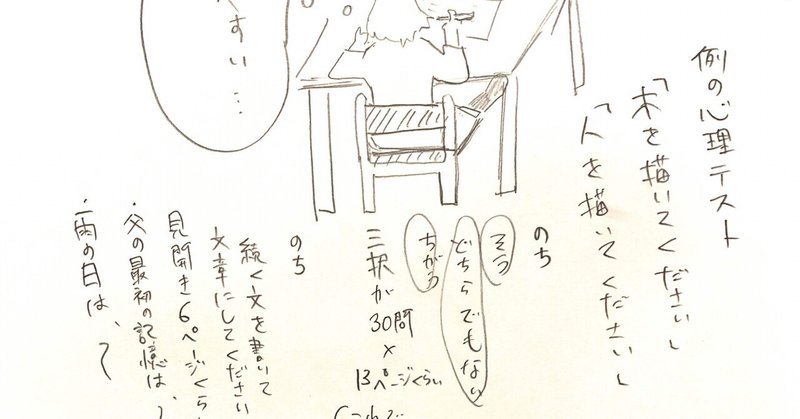 例の心理テスト
「木を描いてください」
「人を描いてください」
のち
そう
どちらでもない
ちがう
三択が
30問
×
13ページくらい
のち
続く文を書いて
文章にしてください
見開き6ページくら
・父の最初の記憶は、〜
・雨の日は、〜
すい…